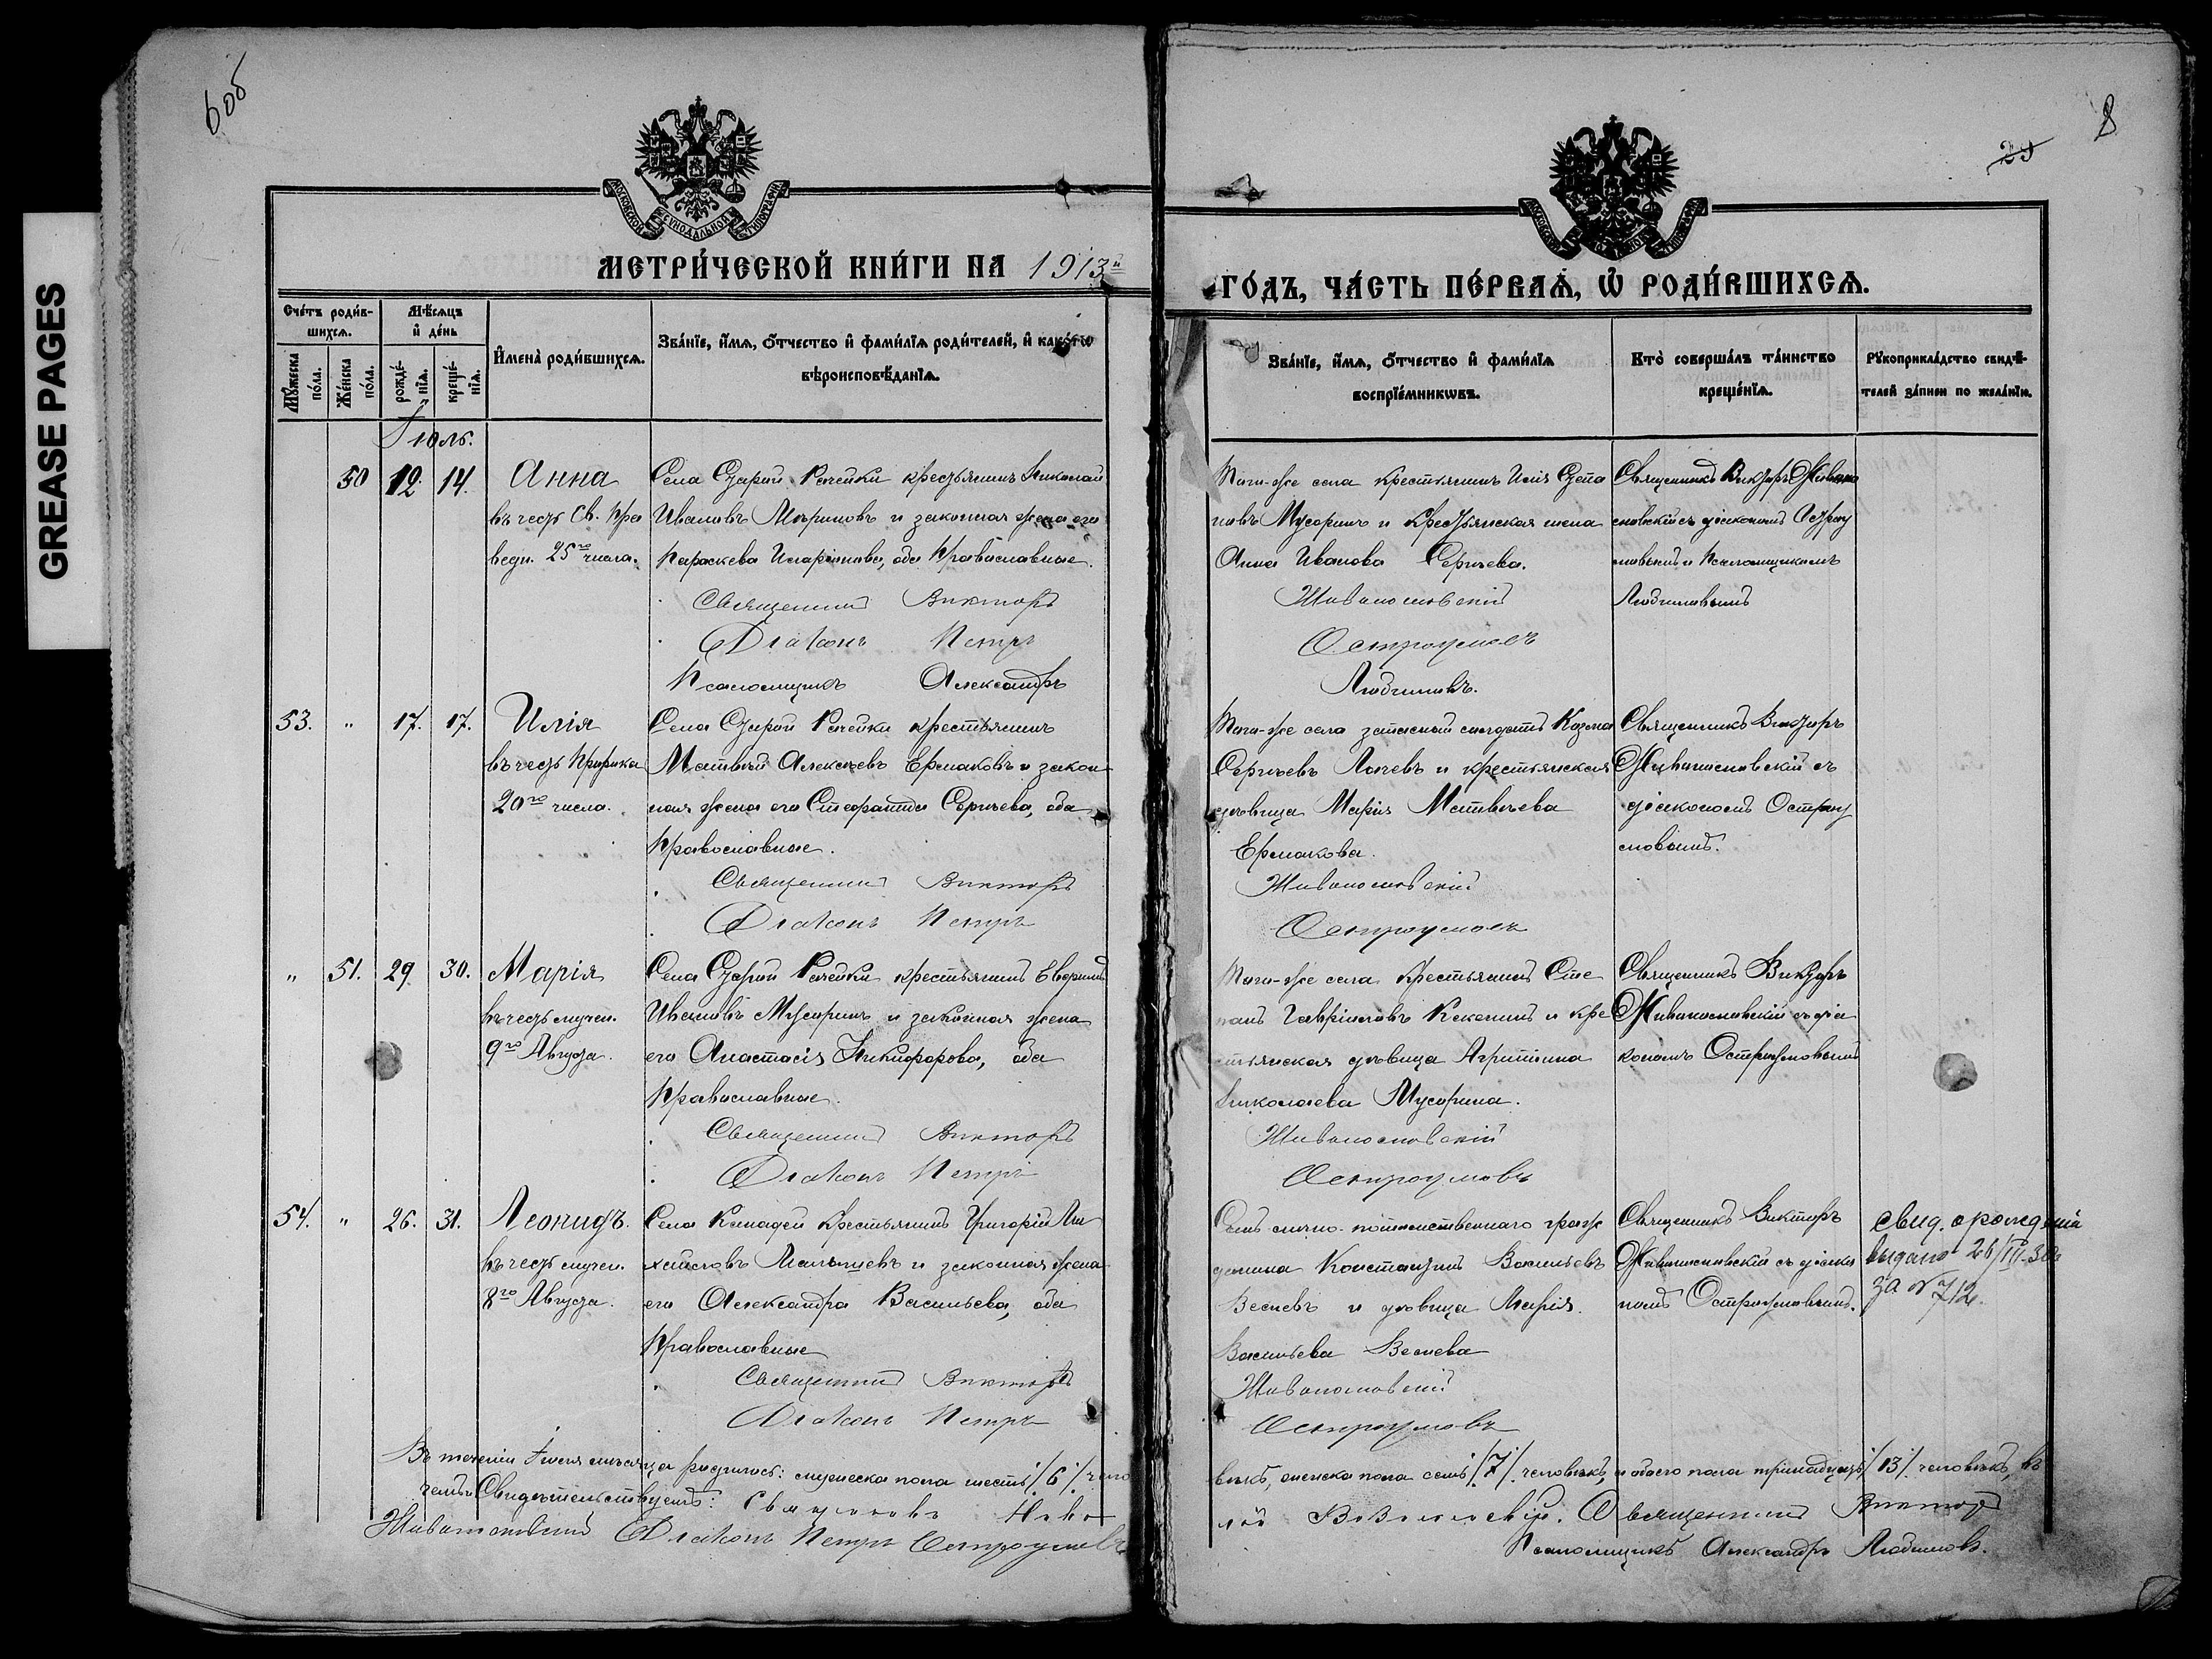 GREASE PAGES
6об
8
29
МОСКОВСКОЙ СѴНОДАЛЬНОЙ ТИПОГРАФІИ
МЕТРИ́ЧЕСКОЙ КНИ́ГИ НА 1913й
ГО́ДЪ, ЧА́СТЬ ПЕ́РВАѦ, Ѡ РОДИ́ВШИХСѦ.
Сче́тъ роди́вшихсѧ.
Мѣ́сѧцъ и де́нь
И́мена̀ роди́вшихсѧ.
Зва́нїе, и́мѧ, о́тчество и фами́лїѧ роди́телей, и како́гѡ
вѣроисповѣ́данїѧ.
Мꙋ́жеска по́ла.
Же́нска по́ла.
рожде́нїѧ.
креще́нїѧ.
Зва́нїе, и́мѧ, о́тчество и фами́лїѧ
воспрїе́мникѡвъ.
Кто̀ соверша́лъ та́инство
креще́нїѧ.
Рꙋкоприкла́дство свидѣ́-
телей за́писи по жела́нїю.
Іюль.
50 12. 14. Анна
въ честь Св. Пра
ведн. 25го числа.
Села Старой Рачейки крестьянинъ Николай
Ивановъ Мѣриновъ и законная жена его
Параскева Иларіонова, оба Православные.
Священникъ Викторъ
Діаконъ Петръ
Псаломщикъ Александръ
Того-же села крестьянинъ Илія Степа
новъ Мусоринъ и крестьянская жена
Анна Иванова Сергѣева.
Живоносновскій
Остроумовъ
Любимовъ.
Священникъ Викторъ Живоно
сновскій съ діакономъ Остроу
мовымъ и Псаломщикомъ
Любимовымъ
53. „ 17. 17. Илія
въ честь Пророка
20го числа.
Села Старой Рачейки крестьянинъ
Матвѣй Алексѣевъ Ермаковъ и закон
ная жена его Стефанида Сергѣева, оба
Православные.
Священникъ Викторъ
Діаконъ Петръ
Того-же села запасной солдатъ Козма
Сергѣевъ Лачевъ и крестьянская
дѣвица Марія Матвѣева
Ермакова.
Живоносновскій
Остроумовъ
Священникъ Викторъ
Живоносновскій съ
діакономъ Остроу
мовымъ.
„ 51. 29 30. Марія
въ честь мучен.
9го Августа.
Села Старой Рачейки крестьянинъ
Ивановъ Мусоринъ и законная жена
его Анастасія Никифорова, оба
Православные.
Священникъ Викторъ
Діаконъ Петръ
Того-же села крестьянинъ Сте
панъ Гавріиловъ Кекоминъ и кре
стьянская дѣвица Агриппина
Николаева Мусорина.
Живоносновскій
Остроумовъ
Священникъ Викторъ
Живоносновскій съ діа
кономъ Остроумовымъ
54. „ 26. 31. Леонидъ.
въ честь мучен.
8го Августа.
Села Канадей крестьянинъ Григорій Ми
хайловъ Малышевъ и законная жена
его Александра Васильева, оба
Православные
Священникъ Викторъ
Діаконъ Петръ
Сынъ лично-потомственнаго граж
данина Константинъ Васильевъ
Весневъ и дѣвица Марія
Васильева Веснева
Живоносновскій
Остроумовъ
Священникъ Викторъ
Живоносновскій съ діако
номъ Остроумовымъ.
свид. о рожденіи
выдано 26/III-30
за № 712.
Въ теченіи Іюля мѣсяца родилось: мужеска пола шесть /6/ чело
вѣкъ, женска пола семь /7/ человѣкъ, и обоего пола тринадцать /13/ человѣкъ, въ
чемъ и Свидѣтельствуемъ:
Священникъ Викторъ
Живоносновскій Діаконъ Петръ Остроумовъ
Псаломщикъ Александръ Любимовъ.